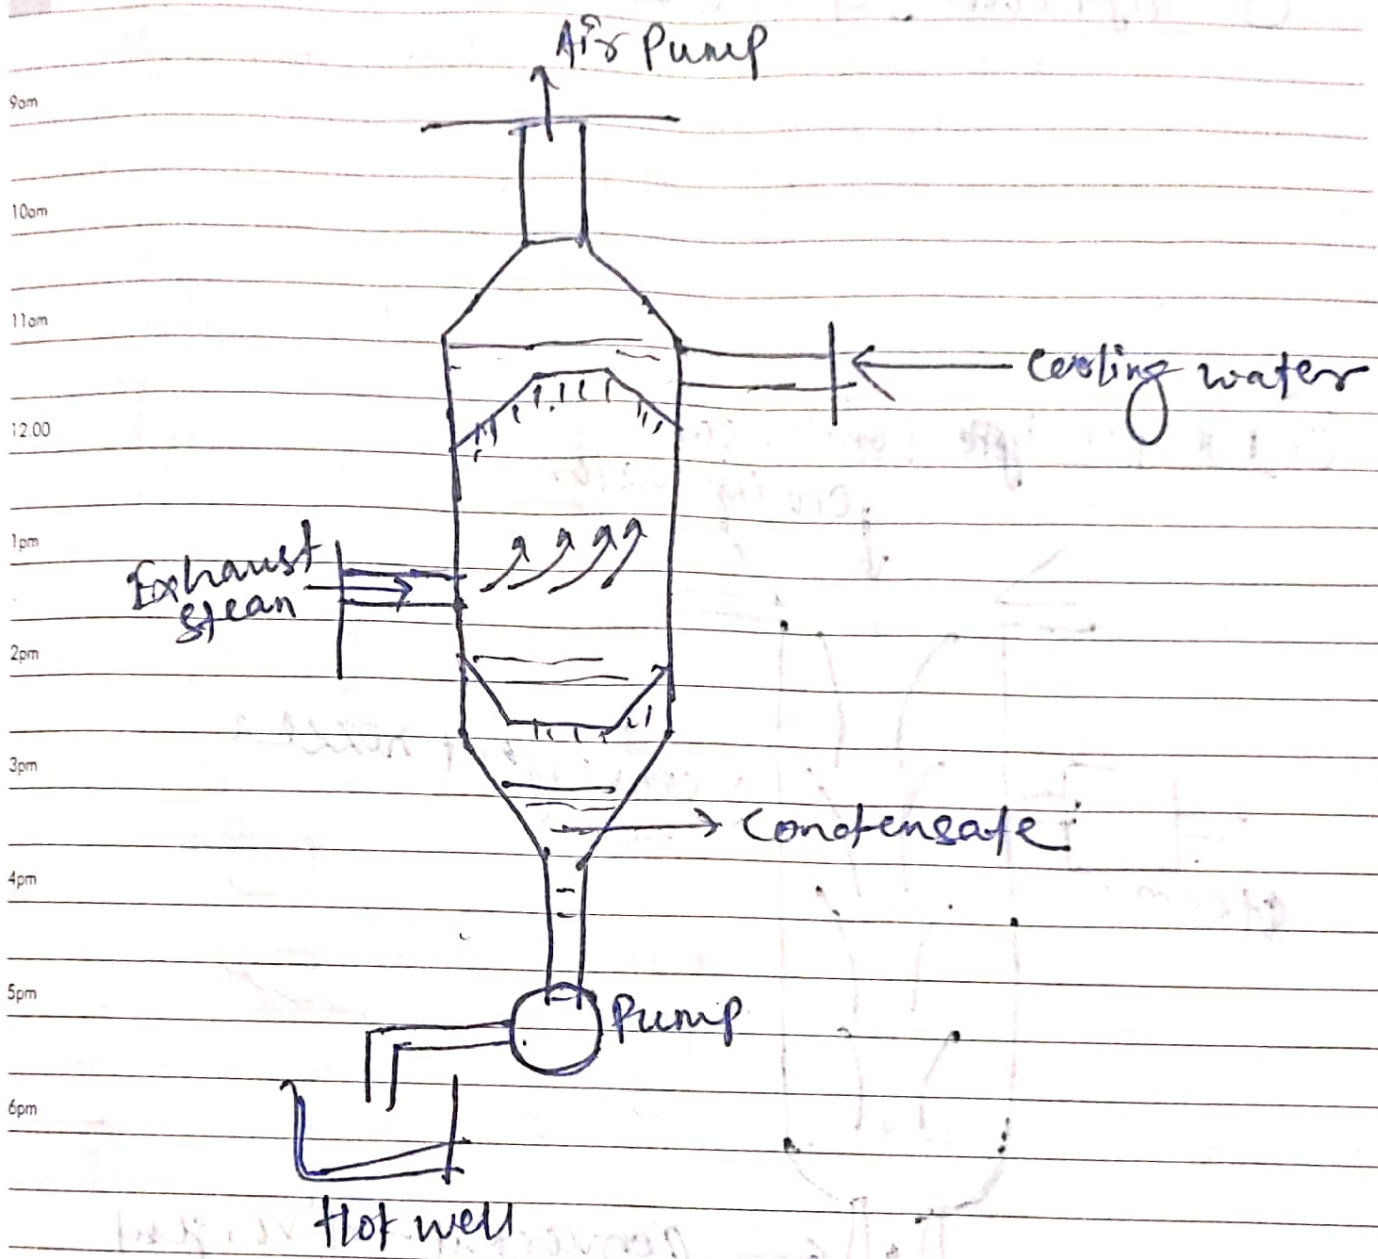 Air Pump
9am
10am
11am
cooling water
12.00
1pm
Exhaust
stean
2pm
3pm
Condensate
4pm
5pm
Pump
6pm
Hot well